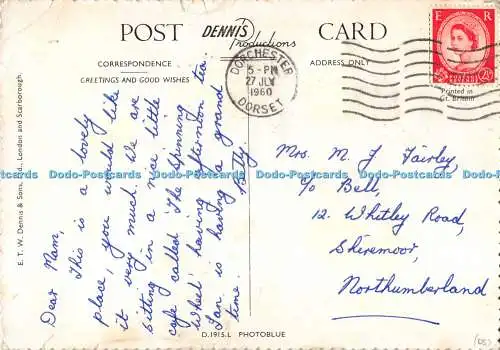 POST
DENNIS
Productions
CARD
CORRESPONDENCE
ADDRESS ONLY
GREETINGS AND GOOD WISHES
Dear Mam,
This is a lovely
place, you would like
it very much. We are
sitting in a nice little
cafe called 'The Spinning
Wheel' having afternoon tea.
Ian is having a grand
time.
Betty.
DORCHESTER
5-PM
27 JLY
1960
DORSET
E R
POSTAGE
REVENUE
2½D
Printed in
Gt. Britain
Mrs. M. J. Fairley,
c/o Bell,
12. Whitley Road,
Shiremoor,
Northumberland
E. T. W. Dennis & Sons, Ltd., London and Scarborough.
D.1915.L PHOTOBLUE
Dodo-Postcards Dodo-Postcards Dodo-Postcards Dodo-Postcards Dodo-Postcards Dodo-Postcards